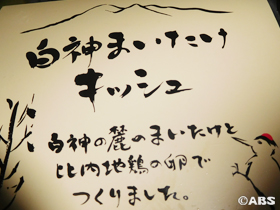 白神まいたけ
キッシュ
白神の麓のまいたけと
比内地鶏の卵で
つくりました。
©ABS